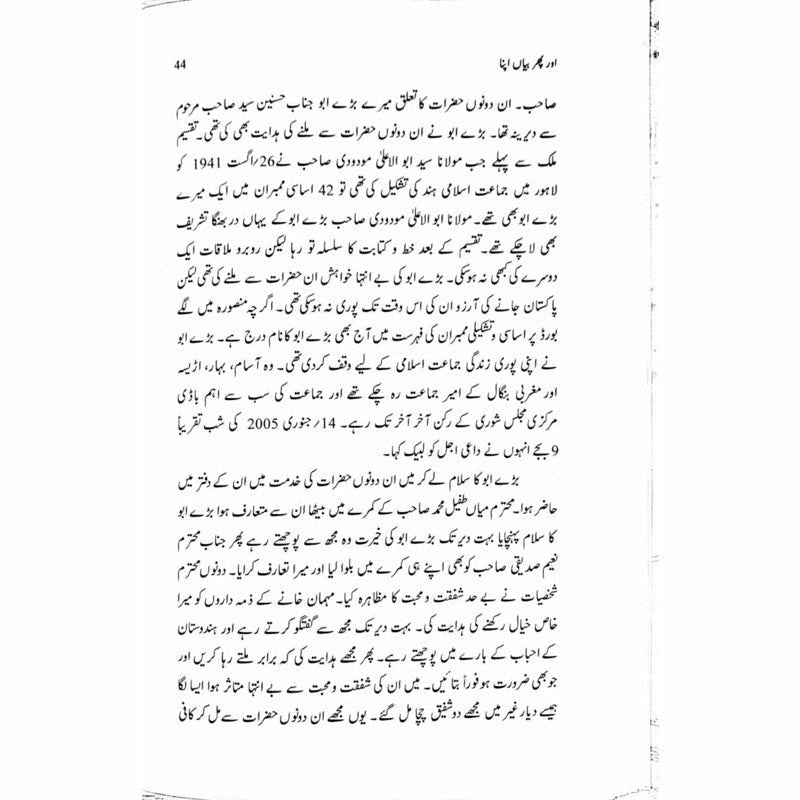 اور پھر بیاں اپنا 44
صاحب۔ ان دونوں حضرات کا تعلق میرے بڑے ابو جناب حسنین سید صاحب مرحوم
سے دیرینہ تھا۔ بڑے ابو نے ان دونوں حضرات سے ملنے کی ہدایت بھی کی تھی۔ تقسیم
ملک سے پہلے جب مولانا سید ابو الاعلیٰ مودودی صاحب نے 26/اگست 1941 کو
لاہور میں جماعت اسلامی ہند کی تشکیل کی تھی تو 42 اساسی ممبران میں ایک میرے
بڑے ابو بھی تھے۔ مولانا ابو الاعلیٰ مودودی صاحب بڑے ابو کے یہاں دربھنگا تشریف
بھی لا چکے تھے۔ تقسیم کے بعد خط و کتابت کا سلسلہ تو رہا لیکن روبرو ملاقات ایک
دوسرے کی کبھی نہ ہوسکی۔ بڑے ابو کی بے انتہا خواہش ان حضرات سے ملنے کی تھی لیکن
پاکستان جانے کی آرزو ان کی اس وقت تک پوری نہ ہوسکی تھی۔ اگرچہ منصورہ میں لگے
بورڈ پر اساسی و تشکیلی ممبران کی فہرست میں آج بھی بڑے ابو کا نام درج ہے۔ بڑے ابو
نے اپنی پوری زندگی جماعت اسلامی کے لیے وقف کردی تھی۔ وہ آسام، بہار، اڑیسہ
اور مغربی بنگال کے امیر جماعت رہ چکے تھے اور جماعت کی سب سے اہم باڈی
مرکزی مجلس شوری کے رکن آخر آخر تک رہے۔ 14/جنوری 2005 کی شب تقریباً
9 بجے انہوں نے داعی اجل کو لبیک کہا۔
بڑے ابو کا سلام لے کر میں ان دونوں حضرات کی خدمت میں ان کے دفتر میں
حاضر ہوا۔ محترم میاں طفیل محمد صاحب کے کمرے میں بیٹھا ان سے متعارف ہوا بڑے ابو
کا سلام پہنچایا بہت دیر تک بڑے ابو کی خیرت وہ مجھ سے پوچھتے رہے پھر جناب محترم
نعیم صدیقی صاحب کو بھی اپنے ہی کمرے میں بلوا لیا اور میرا تعارف کرایا۔ دونوں محترم
شخصیات نے بے حد شفقت و محبت کا مظاہرہ کیا۔ مہمان خانے کے ذمہ داروں کو میرا
خاص خیال رکھنے کی ہدایت کی۔ بہت دیر تک مجھ سے گفتگو کرتے رہے اور ہندوستان
کے احباب کے بارے میں پوچھتے رہے۔ پھر مجھے ہدایت کی کہ برابر ملتے رہا کریں اور
جو بھی ضرورت ہو فوراً بتائیں۔ میں ان کی شفقت و محبت سے بے انتہا متاثر ہوا ایسا لگا
جیسے دیار غیر میں مجھے دو شفیق چچا مل گئے۔ یوں مجھے ان دونوں حضرات سے مل کر کافی